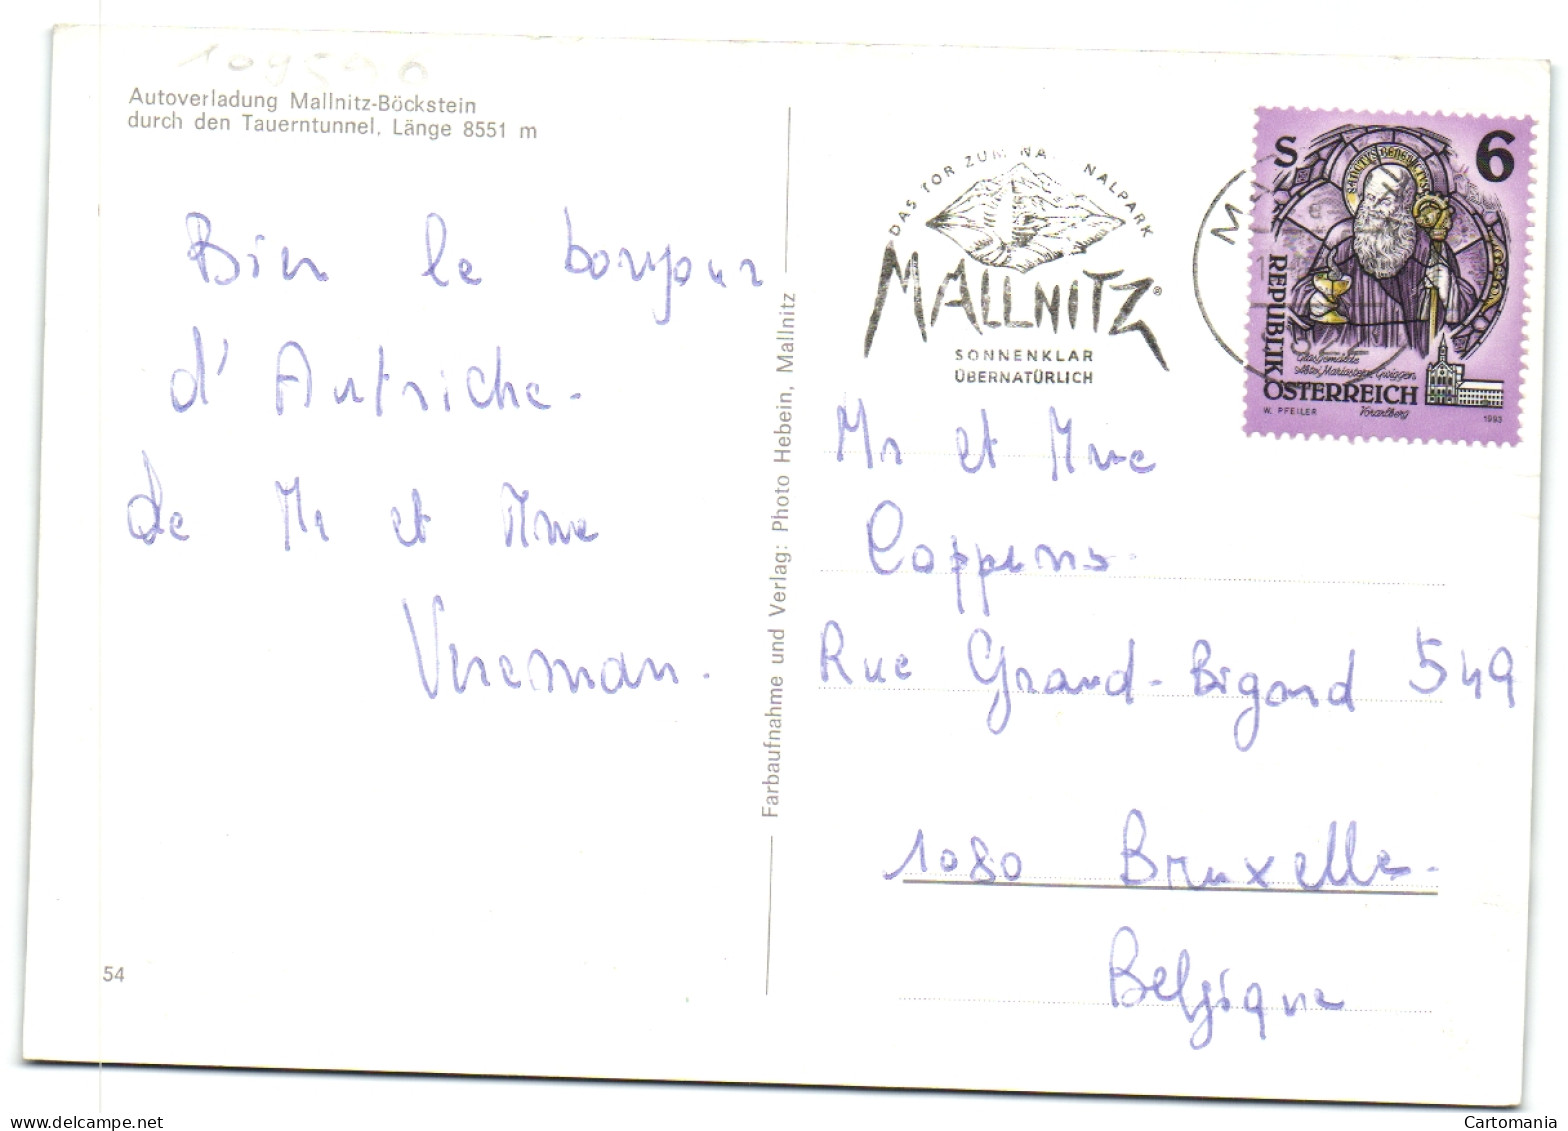 Autoverladung Mallnitz-Böckstein
durch den Tauerntunnel, Länge 8551 m
Bien le bonjour
d'Autriche.
de Mr et Mme
Vereman.
54
Farbaufnahme und Verlag: Photo Hebein, Mallnitz
DAS TOR ZUM NA NALPARK
MALLNITZ®
SONNENKLAR
ÜBERNATÜRLICH
S 6
SANCTUS BENEDICTUS
REPUBLIK
ÖSTERREICH
Glasgemälde
Abtei Mariastern Gwiggen
Vorarlberg
W. PFEILER
1993
Mr et Mme
Coppens.
Rue Grand-Bigard 549
1080 Bruxelles.
Belgique
delcampe.net
Cartomania